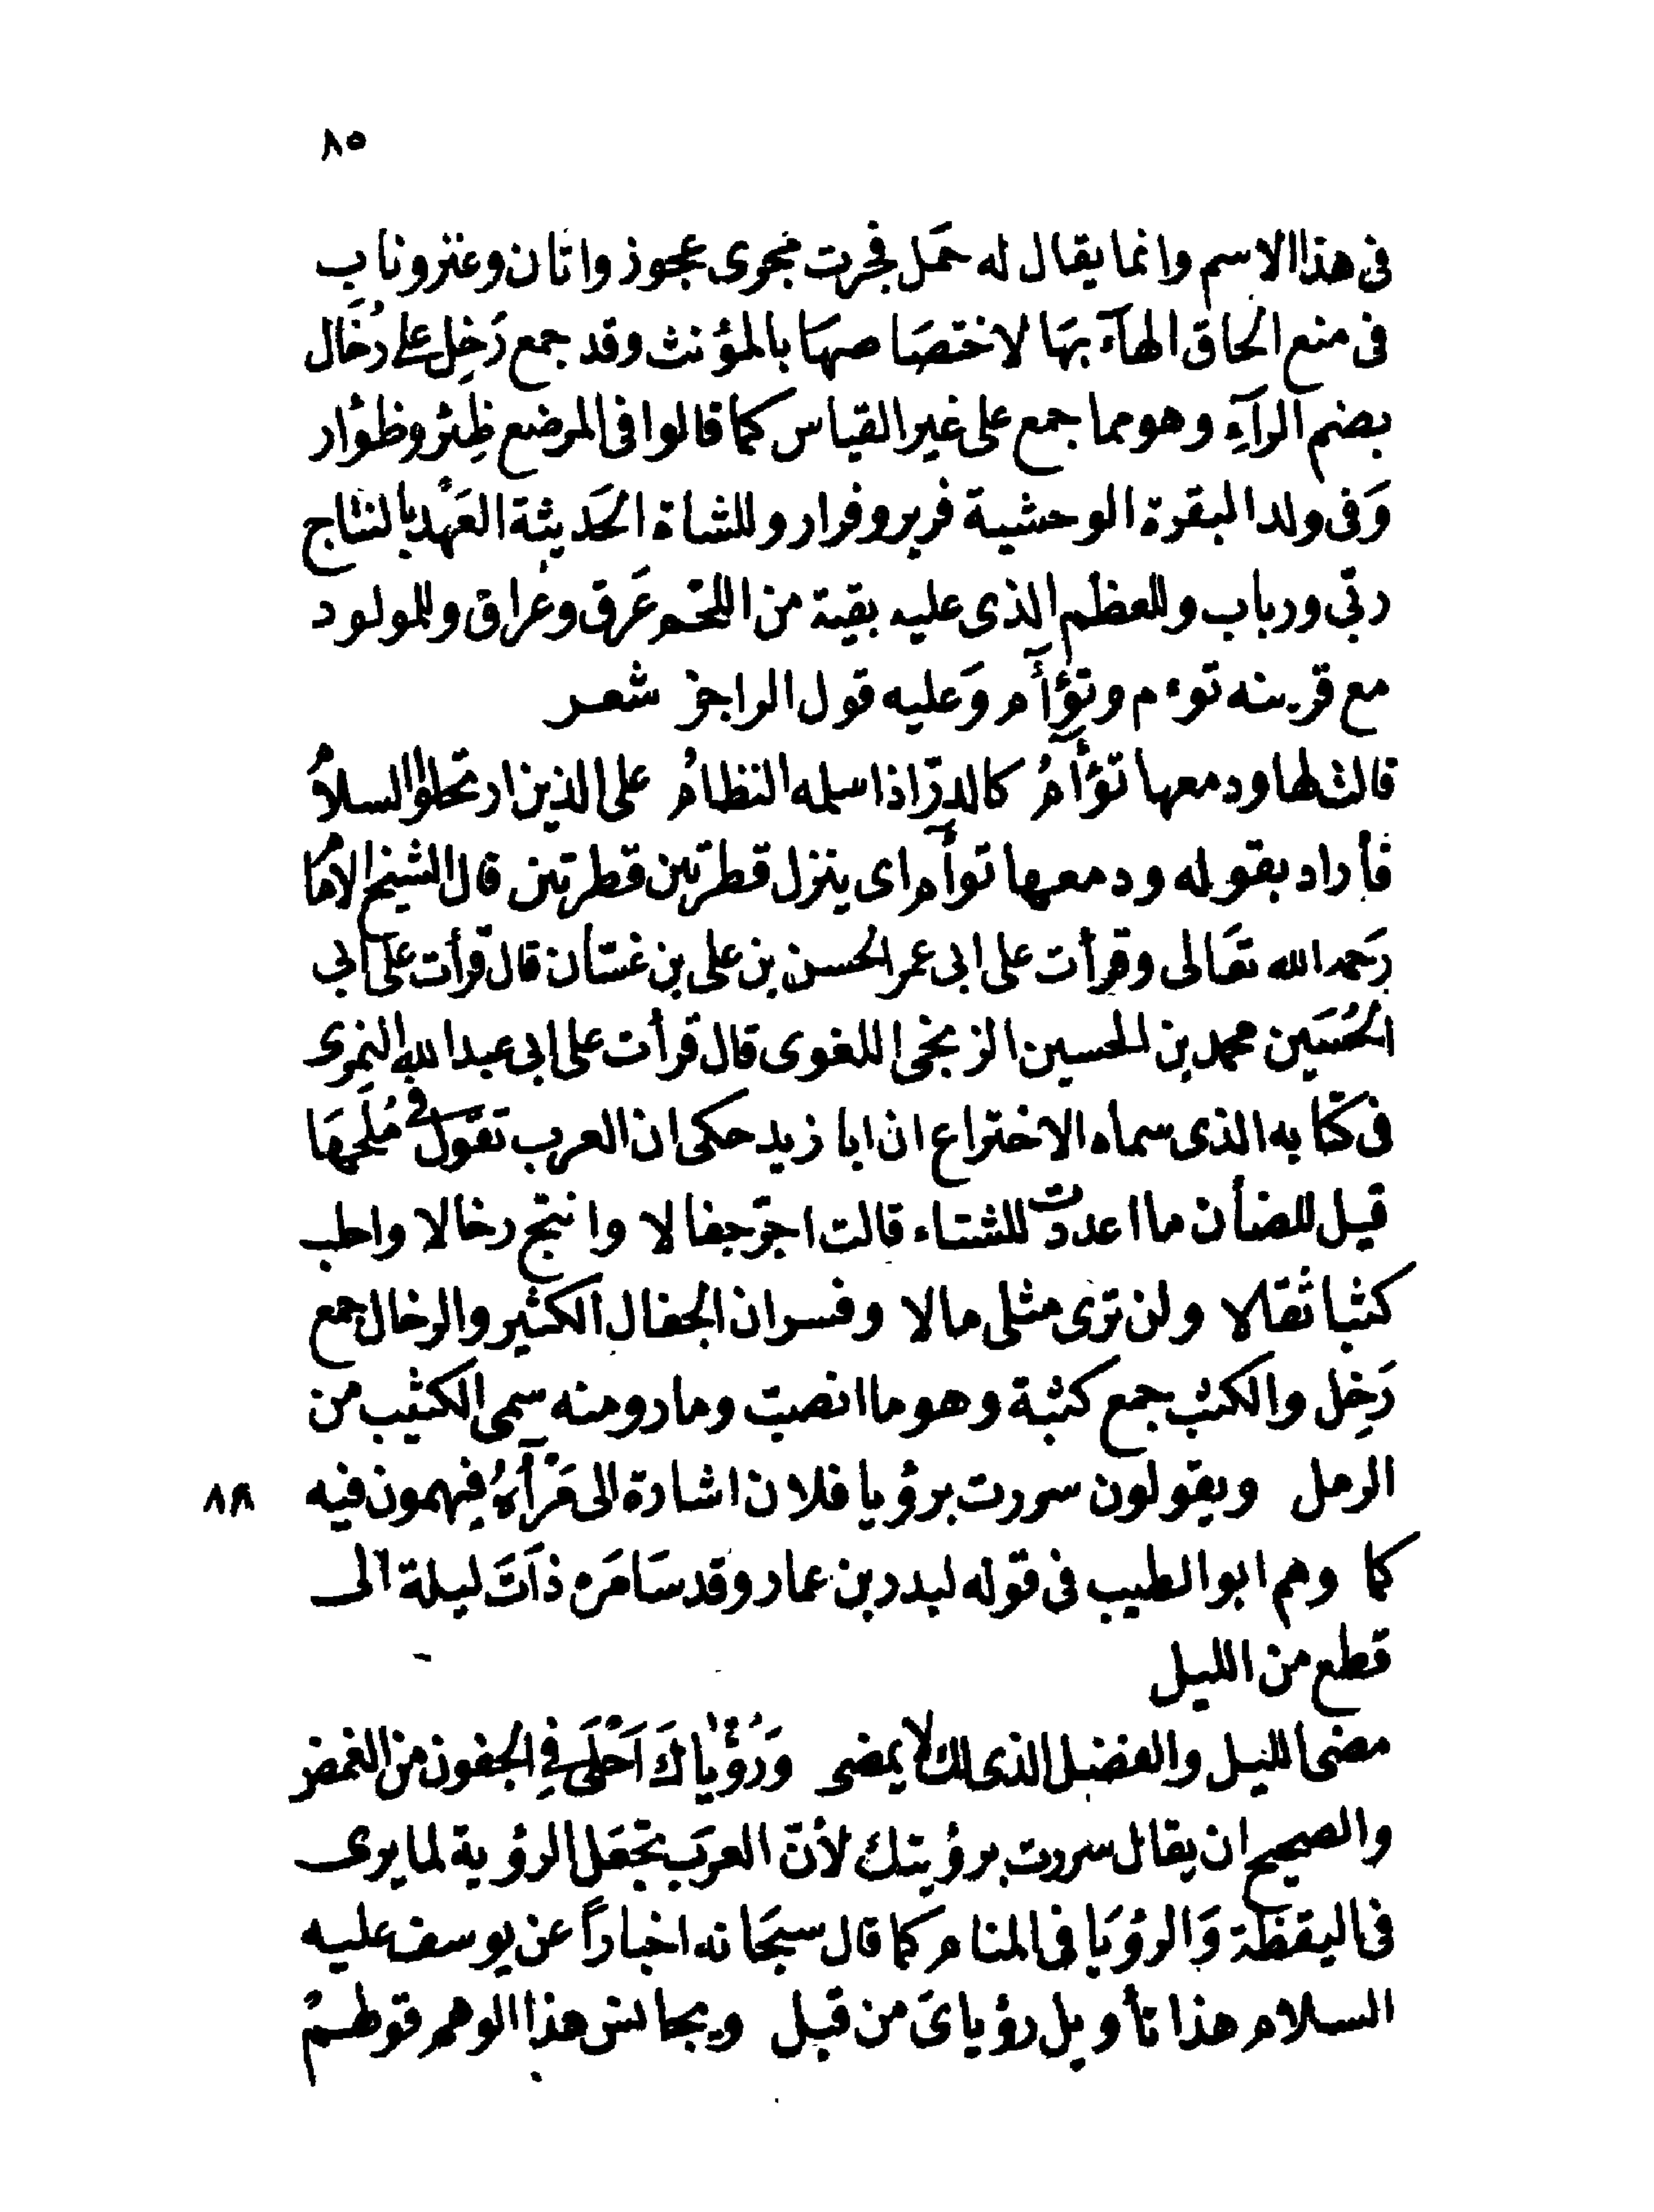 ٨٥
فى هذا الاسم وانما يقال له حَمَل فجرت مجرى عجوز واتان وعنز وناب
فى منع الحاق الهآء بهَا لاختصَاصهَا بالمؤنث وقد جمع رَخِل على رُخَال
بضم الرآءِ وهو مما جمع على غير القياس كما قالوا فى المرضع ظِئر وظؤار
وَفى ولد البقرة الوحشية فرير وفرار وللشاة الحَديثة العَهْد بالنتاج
ربّى ورباب وللعظم الذى عليه بقية من اللحم عَرق وعراق وللمولود
مع قرينه توءم وتؤآم وَعليه قول الراجز شعر
قالت لها ودمعها تؤآمُ كالدرّ اذا سلمه النظامُ على الذين ارتحلوا السلامُ
فأراد بقوله ودمعها توآم اى ينزل قطرتين قطرتين قال الشيخ الامام
رَحمه الله تعَالى وقرأت على ابى عمر الحسن بن على بن غسّان قال قرأت على ابى
الحُسَين محمد بن الحسين الزنجى اللغوى قال قرأت على ابى عبد الله النمرى
فى كتابه الذى سماه الاختراع ان ابا زيد حكى ان العرب تقول فى مُلَحِهَا
قيل للضأن ما اعددت للشتاء قالت اجزّ جفالا وانتج رخالا واحلب
كثبا ثقالا ولن ترى مثلى مالا وفسر ان الجفال الكثير والرخال جمع
رَخِل والكثب جمع كثبة وهو ما انصبّ ومار ومنه سمى الكثيب من
الرمل ويقولون سررت برؤيا فلان اشارة الى مَرْآهُ فيهمون فيه ٨٨
كما وهم ابو الطيب فى قوله لبدر بن عمار وقد سَامَره ذَاتَ ليلة الى
قطع من الليل
مضى الليل والفضل الذى لك لا يمضى وَرُؤْيَاكَ اَحْلَى فِى الجفون من الغمض
والصحيح ان يقال سررت برؤيتك لأنّ العرَب تجعَل الرؤية لما يرى
فى اليقظة وَالرؤيَا فى المنام كما قال سبحَانه اخباراً عن يوسف عليه
السلام هذا تأويل رؤياىَ من قبل ويجانس هذا الوهم قولهمُ